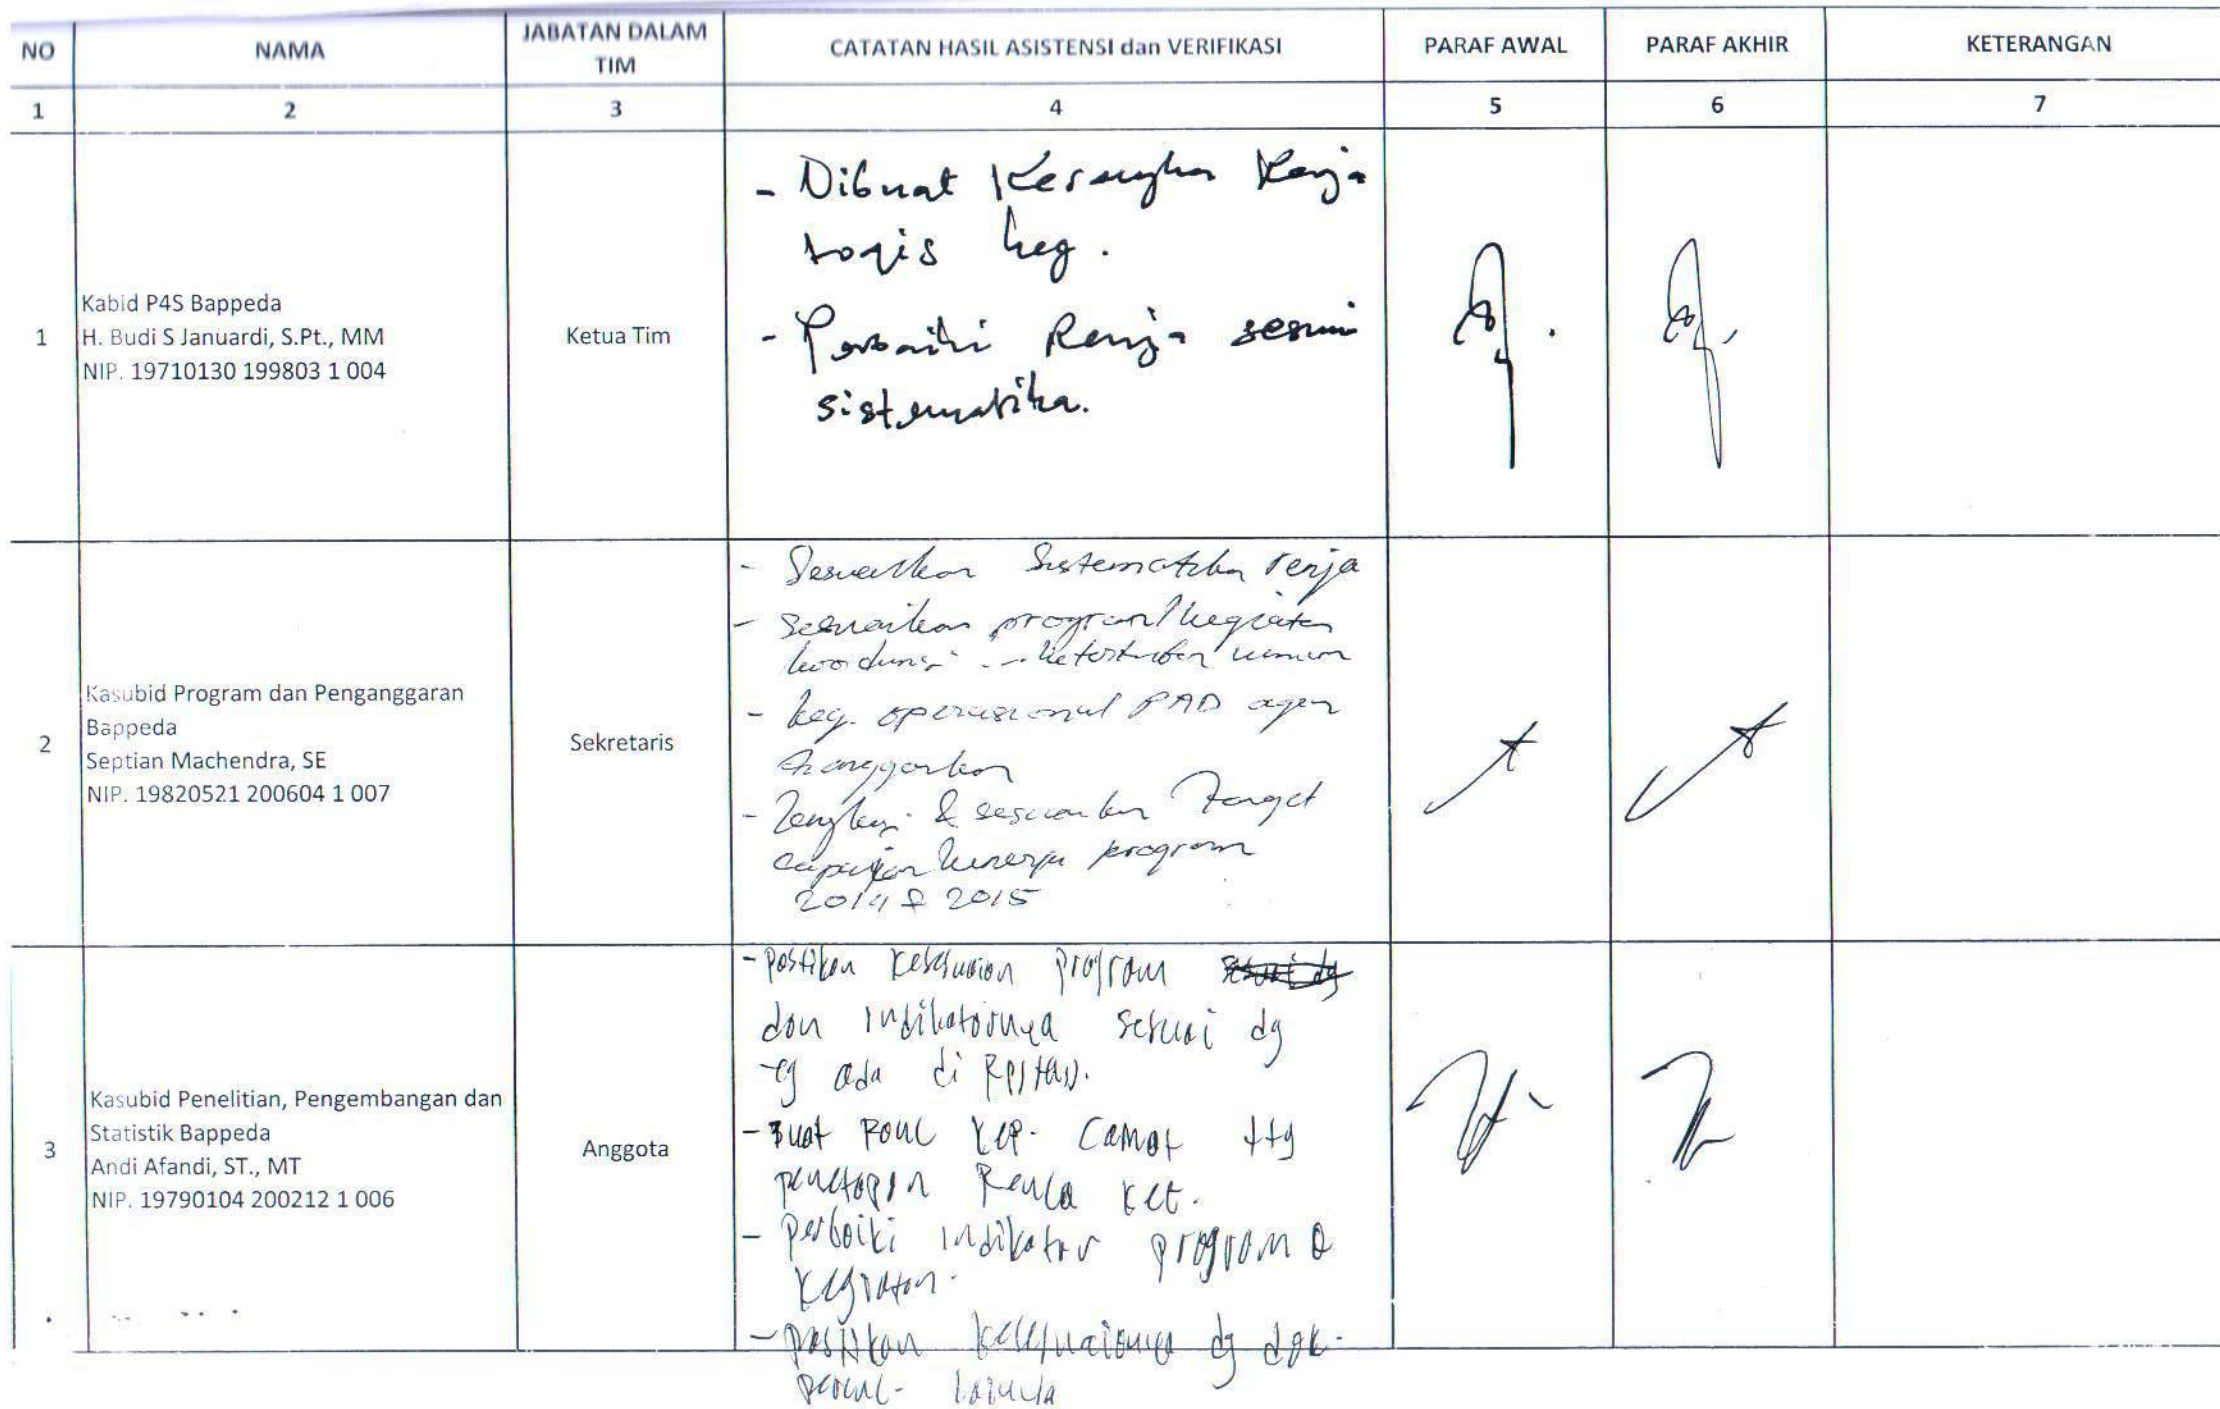 NO
NAMA
JABATAN DALAM
TIM
CATATAN HASIL ASISTENSI dan VERIFIKASI
PARAF AWAL
PARAF AKHIR
KETERANGAN
1
2
3
4
5
6
7
1
Kabid P4S Bappeda
H. Budi S Januardi, S.Pt., MM
NIP. 19710130 199803 1 004
Ketua Tim
- Dibuat Kerangka Kerja
Logis keg.
- Perbaiki Renja sesuai
sistematika.
2
Kasubid Program dan Penganggaran
Bappeda
Septian Machendra, SE
NIP. 19820521 200604 1 007
Sekretaris
- Sesuaikan Sistematika renja
- sesuaikan program/kegiatan
umum
- keg. operasional PAD agar
dianggarkan
- Lengkapi & sesuaikan Target
capaian kinerja program
2014 & 2015
3
Kasubid Penelitian, Pengembangan dan
Statistik Bappeda
Andi Afandi, ST., MT
NIP. 19790104 200212 1 006
Anggota
- pastikan kesesuaian program
dan indikatornya sesuai dg
yg ada di
- Buat Ranc Kep. Camat ttg
penetapan Kec.
- perbaiki indikator program &
kegiatan.
- pastikan kesesuaiannya dg dok.
perenc. lainnya